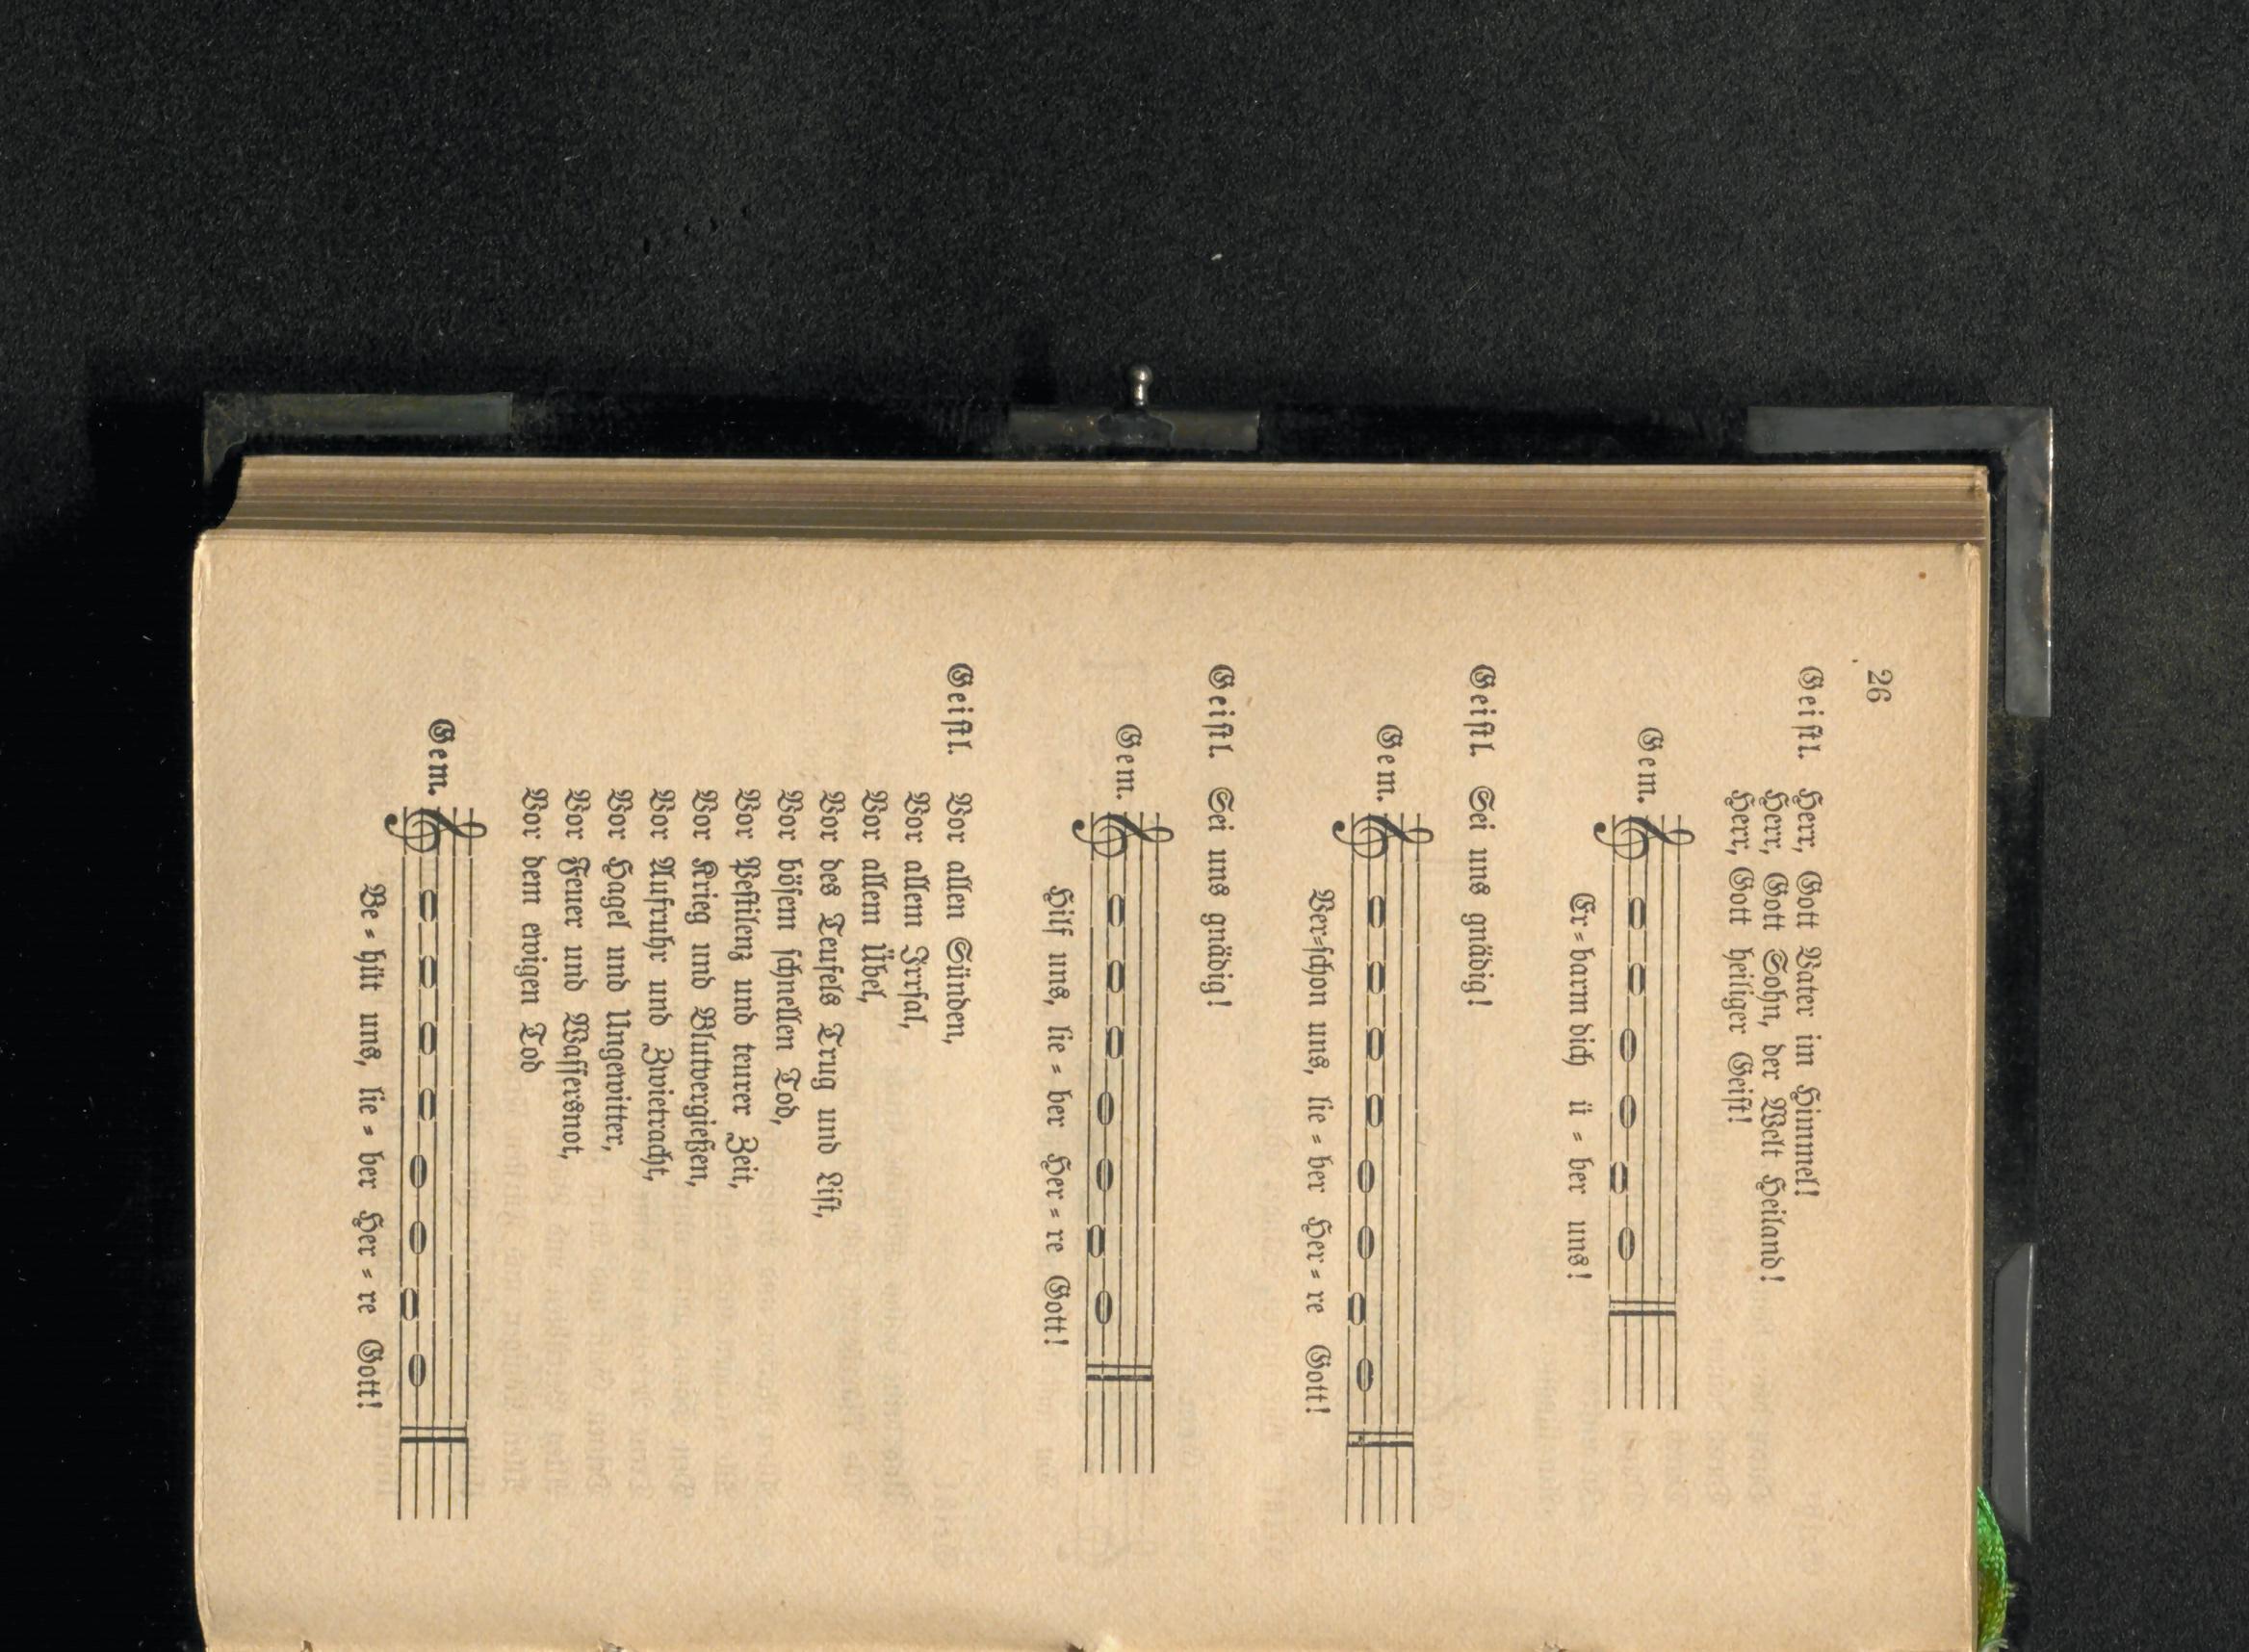 26
Geistl. Herr, Gott Vater im Himmel!
Herr, Gott Sohn, der Welt Heiland!
Herr, Gott heiliger Geist!
Gem.
Er-barm dich ü-ber uns!
Geistl. Sei uns gnädig!
Gem.
Ver-schon uns, lie-ber Her-re Gott!
Geistl. Sei uns gnädig!
Gem.
Hilf uns, lie-ber Her-re Gott!
Geistl. Vor allen Sünden,
Vor allem Irrsal,
Vor allem Übel,
Vor des Teufels Trug und List,
Vor bösem schnellen Tod,
Vor Pestilenz und teurer Zeit,
Vor Krieg und Blutvergießen,
Vor Aufruhr und Zwietracht,
Vor Hagel und Ungewitter,
Vor Feuer und Wassersnot,
Vor dem ewigen Tod
Gem.
Be-hüt uns, lie-ber Her-re Gott!